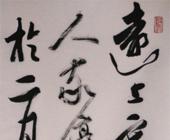 遠上寒
人家
於二月